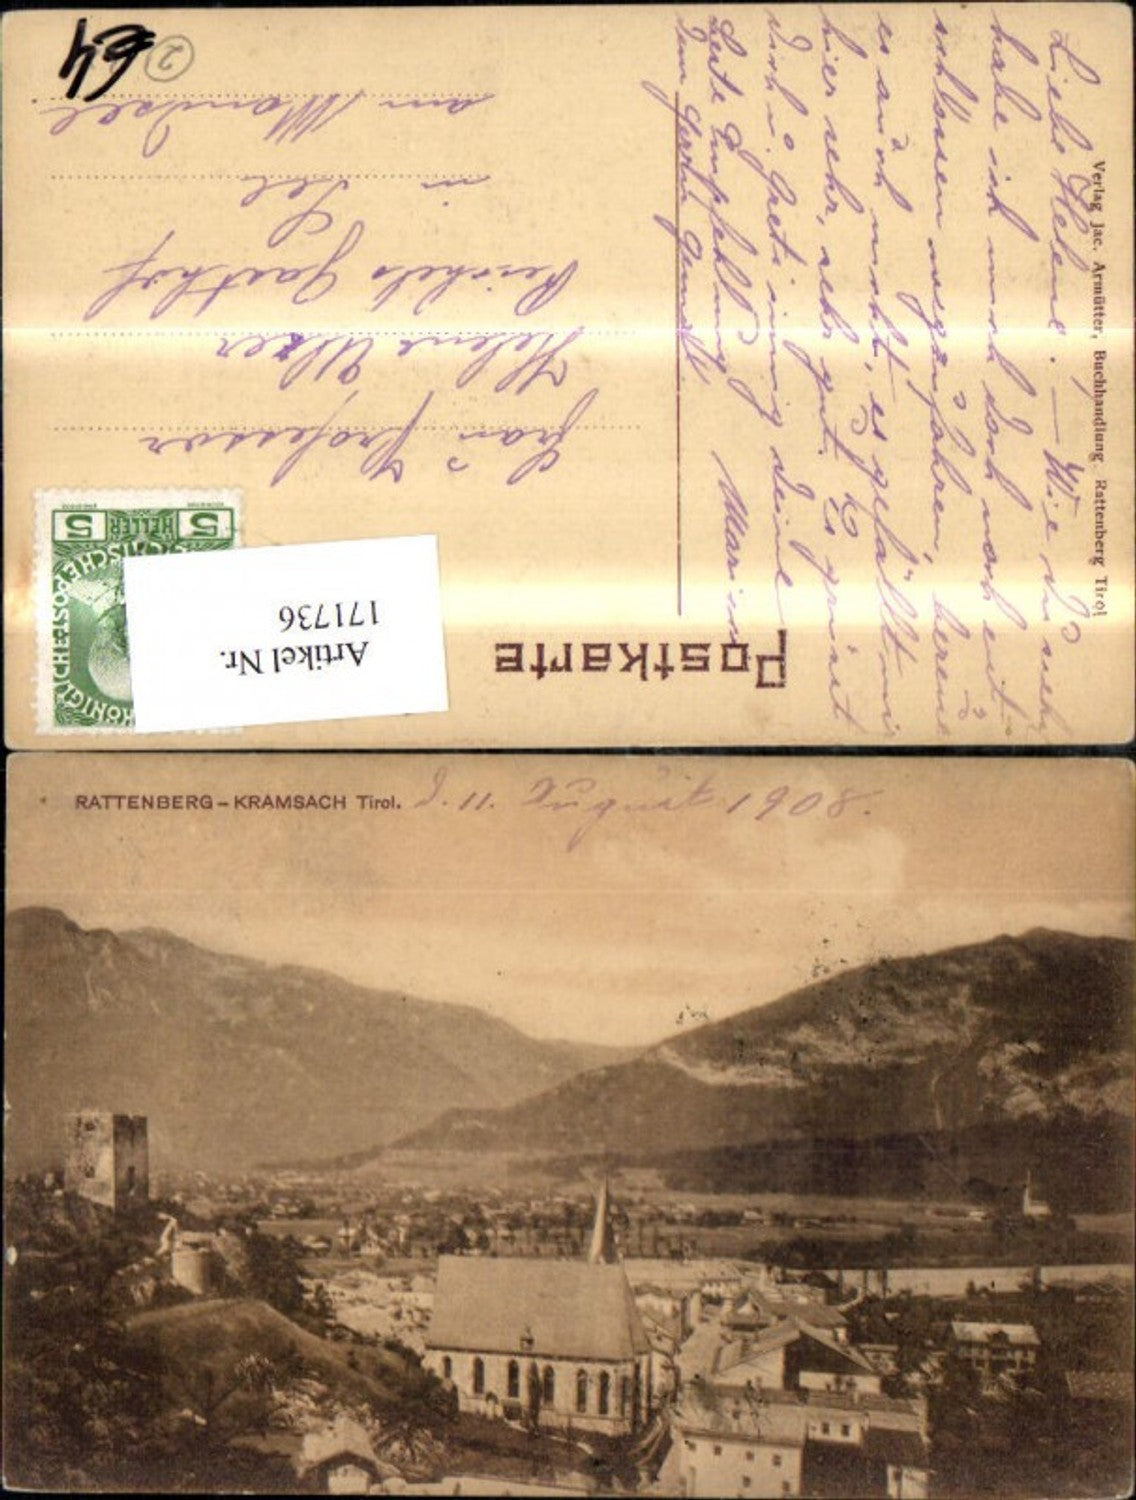 64
2
Postkarte
Verlag Jac. Armütter, Buchhandlung Rattenberg Tirol
Liebe Helene. — Wie du siehst
habe ich mich doch noch ent-
schlossen wegzufahren, bereue
es auch nicht, es gefällt mir
hier sehr, sehr gut. Es grüsst
dich u. Greti innig deine
Marie
Beste Empfehlung
Dem Herrn Gemahl
Frau Professor
Helene Ulzer
Reichels Gasthof
in See
am Mondsee.
5 HELLER 5
KÖNIGLICHE
Artikel Nr.
171736
RATTENBERG – KRAMSACH Tirol.
d. 11. August 1908.